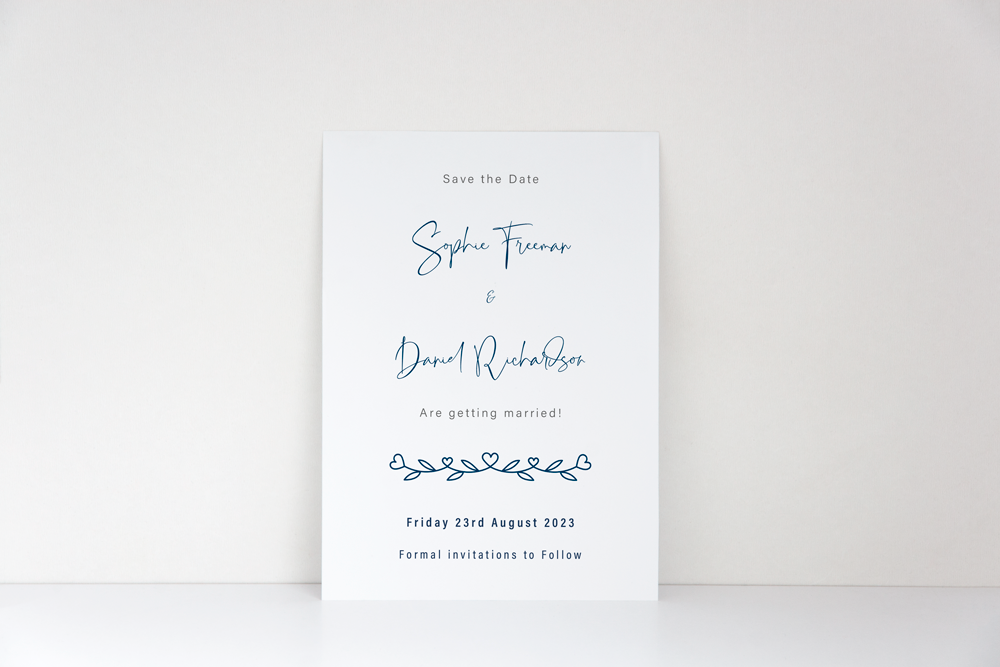 Save the Date
Sophie Freeman
&
Daniel Richardson
Are getting married!
Friday 23rd August 2023
Formal invitations to Follow